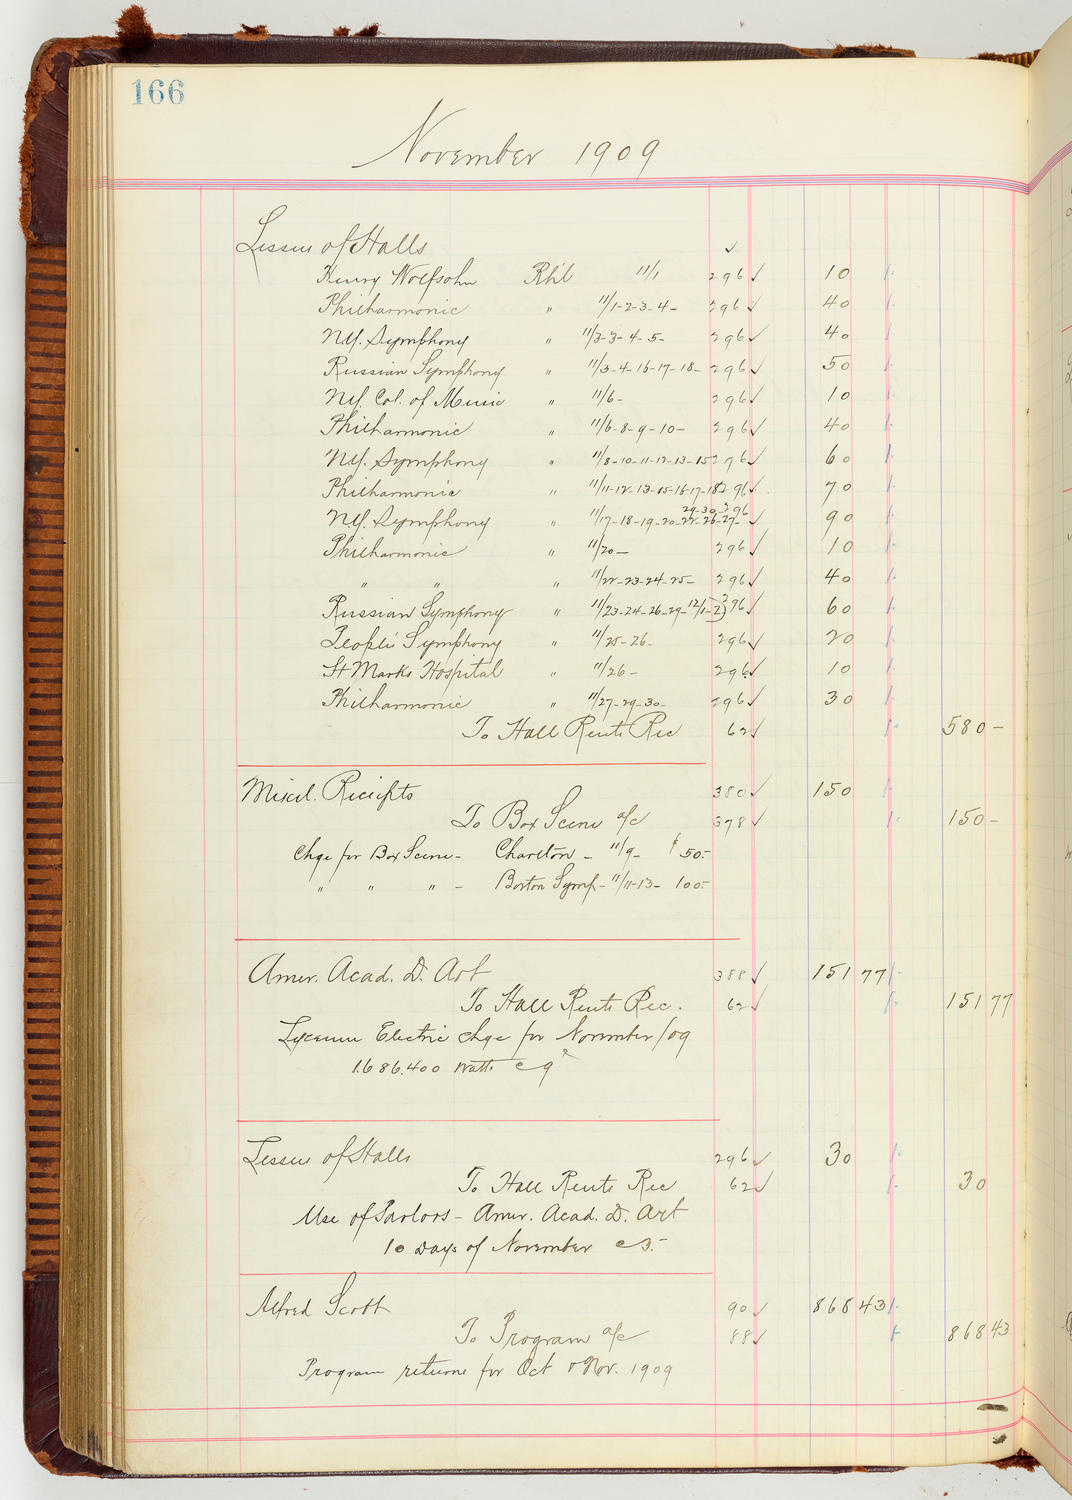 166
November 1909
Lessees of Halls ✓
Henry Wolfsohn Rhl 11/1 296 ✓ 10
Philharmonic " 11/1-2-3-4- 296 ✓ 40
N.Y. Symphony " 11/3-3-4-5- 296 ✓ 40
Russian Symphony " 11/3-4-16-17-18- 296 ✓ 50
N.Y. Col. of Music " 11/6- 296 ✓ 10
Philharmonic " 11/6-8-9-10- 296 ✓ 40
N.Y. Symphony " 11/8-10-11-12-13-15 296 ✓ 60
Philharmonic " 11/11-12-13-15-16-17-18 296 ✓ 70
29-30 296
N.Y. Symphony " 11/17-18-19-20-22-26-27- ✓ 90
Philharmonic " 11/20- 296 ✓ 10
" " " 11/22-23-24-25- 296 ✓ 40
Russian Symphony " 11/23-24-26-29-12/1-2) 296 ✓ 60
People's Symphony " 11/25-26- 296 ✓ 20
St Marks Hospital " 11/26- 296 ✓ 10
Philharmonic " 11/27-29-30- 296 ✓ 30
To Hall Rents Rec 62 ✓ 580-
Miscl. Receipts 380 ✓ 150
To Box Scene a/c 378 ✓ 150-
Chge for Box Scene- Charlton - 11/9- $50.-
" " " - Boston Symp- 11/11-13- 100.-
Amer. Acad. D. Art 388 ✓ 151 77
To Hall Rents Rec. 62 ✓ 151 77
Lyceum Electric chge for November/09
1.686.400 watts @ 9
Lessees of Halls 296 ✓ 30
To Hall Rents Rec 62 ✓ 30
Use of Parlors - Amer. Acad. D. Art
10 days of November @ 3.-
Alfred Scott 90 ✓ 868 43
To Program a/c 88 ✓ 868 43
Program returns for Oct & Nov. 1909